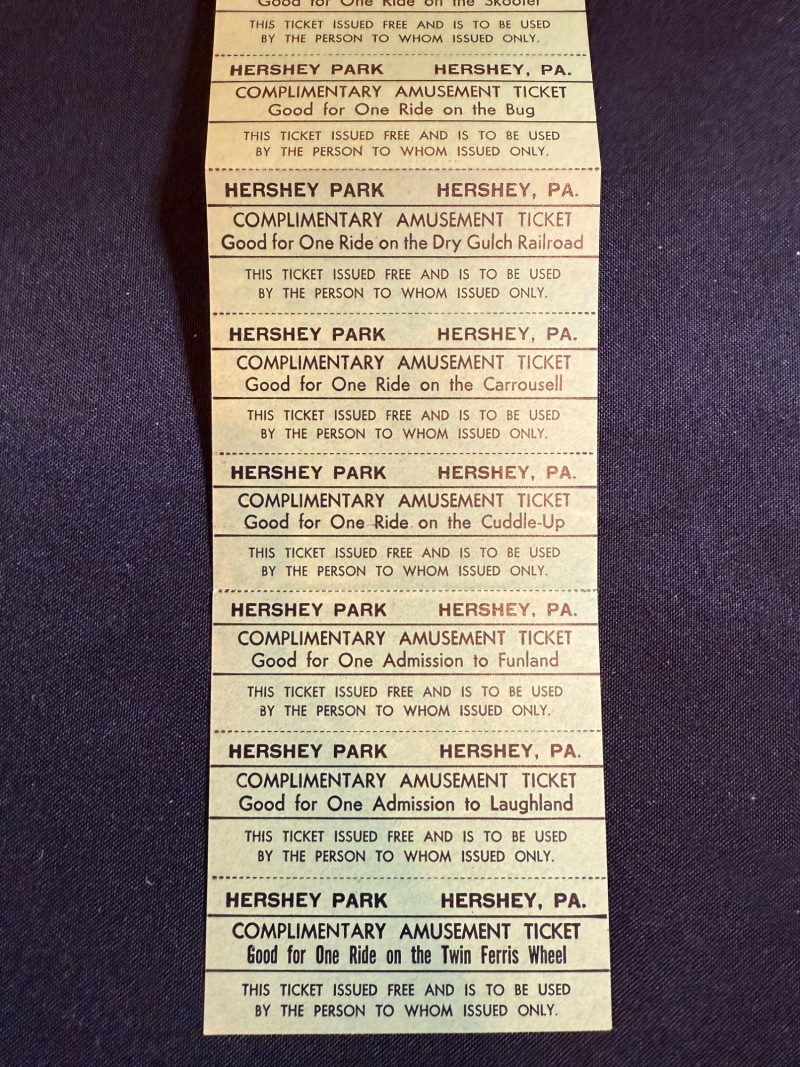 Good for One Ride on the Skooter
THIS TICKET ISSUED FREE AND IS TO BE USED
BY THE PERSON TO WHOM ISSUED ONLY.
HERSHEY PARK HERSHEY, PA.
COMPLIMENTARY AMUSEMENT TICKET
Good for One Ride on the Bug
THIS TICKET ISSUED FREE AND IS TO BE USED
BY THE PERSON TO WHOM ISSUED ONLY.
HERSHEY PARK HERSHEY, PA.
COMPLIMENTARY AMUSEMENT TICKET
Good for One Ride on the Dry Gulch Railroad
THIS TICKET ISSUED FREE AND IS TO BE USED
BY THE PERSON TO WHOM ISSUED ONLY.
HERSHEY PARK HERSHEY, PA.
COMPLIMENTARY AMUSEMENT TICKET
Good for One Ride on the Carrousell
THIS TICKET ISSUED FREE AND IS TO BE USED
BY THE PERSON TO WHOM ISSUED ONLY.
HERSHEY PARK HERSHEY, PA.
COMPLIMENTARY AMUSEMENT TICKET
Good for One Ride on the Cuddle-Up
THIS TICKET ISSUED FREE AND IS TO BE USED
BY THE PERSON TO WHOM ISSUED ONLY.
HERSHEY PARK HERSHEY, PA.
COMPLIMENTARY AMUSEMENT TICKET
Good for One Admission to Funland
THIS TICKET ISSUED FREE AND IS TO BE USED
BY THE PERSON TO WHOM ISSUED ONLY.
HERSHEY PARK HERSHEY, PA.
COMPLIMENTARY AMUSEMENT TICKET
Good for One Admission to Laughland
THIS TICKET ISSUED FREE AND IS TO BE USED
BY THE PERSON TO WHOM ISSUED ONLY.
HERSHEY PARK HERSHEY, PA.
COMPLIMENTARY AMUSEMENT TICKET
Good for One Ride on the Twin Ferris Wheel
THIS TICKET ISSUED FREE AND IS TO BE USED
BY THE PERSON TO WHOM ISSUED ONLY.